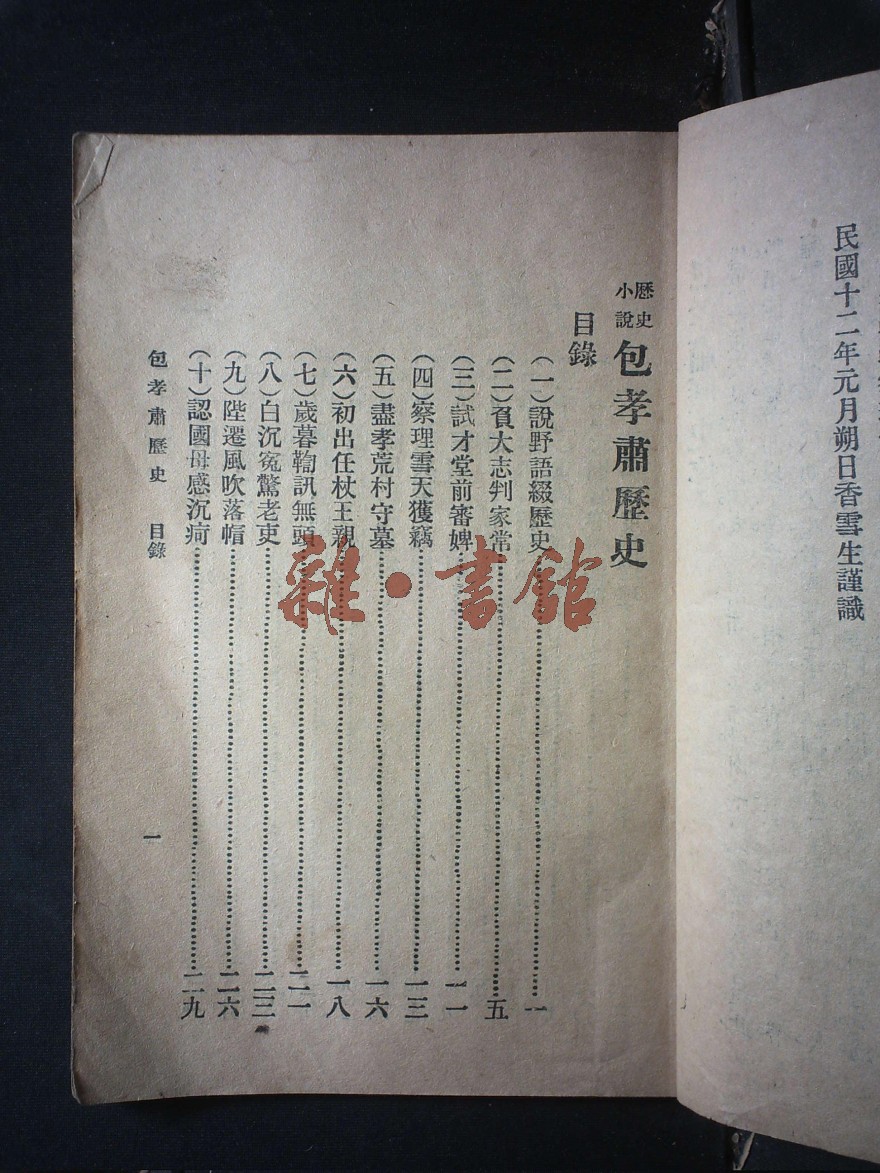 民國十二年元月朔日香雪生謹識
歷史小說 包孝肅歷史
目錄
（一）說野語綴歷史……一
（二）負大志判家常……五
（三）試才堂前審婢……一一
（四）察理雪天獲竊……一三
（五）盡孝荒村守墓……一六
（六）初出任杖王親……一八
（七）歲暮鞫訊無頭……二一
（八）白沉冤驚老吏……二三
（九）陞遷風吹落帽……二六
（十）認國母感沉疴……二九
包孝肅歷史 目錄 一
雜·書館